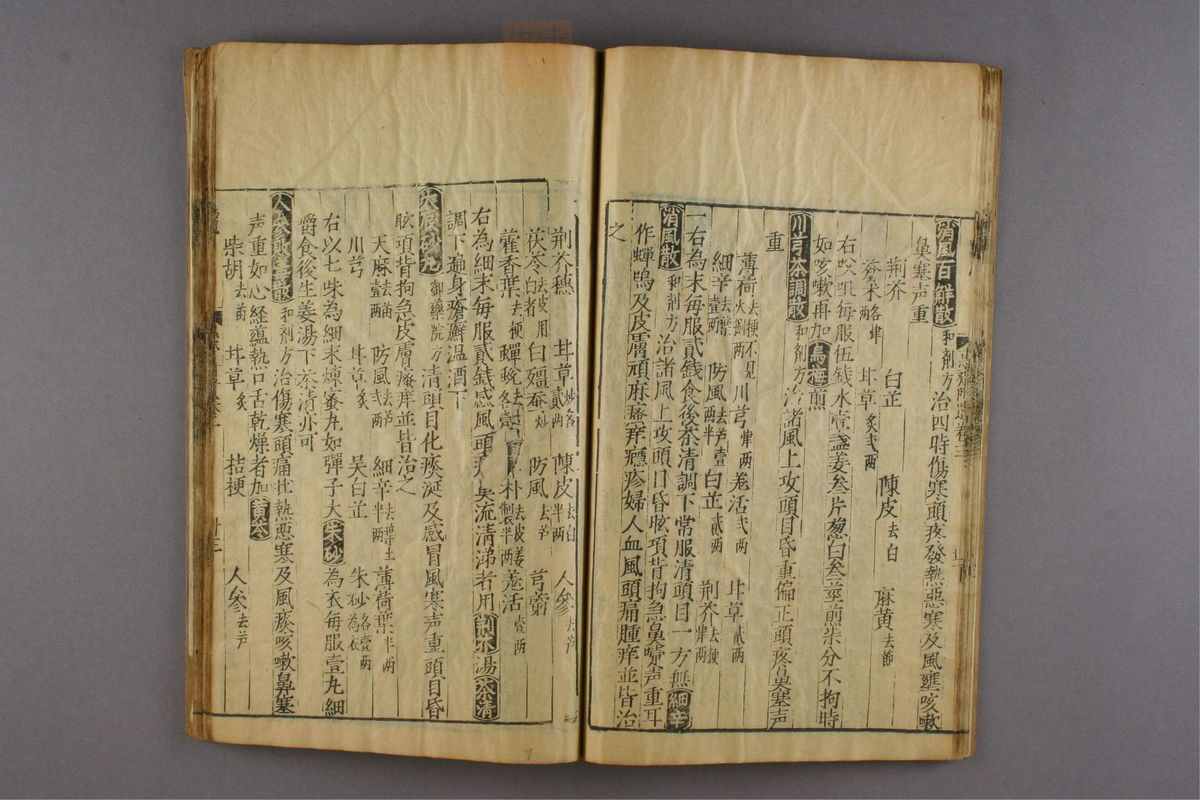 消風百解散 和剤方 治四時傷寒頭疼發熱惡寒及風壅咳嗽
鼻塞声重
荆芥 白芷 陳皮去白 麻黄去節
蒼朮 甘草炙弍两
右㕮咀每服伍錢水壹盞姜叁片葱白叁莖前柒分不拘時
如咳嗽再加烏梅煎
川芎茶調散 和剤方 治諸風上攻頭目昏重偏正頭疼鼻塞声
重
薄荷去梗不見火 川芎 羌活弍两 甘草貳两
細辛去 壹两 防風去芦壹两半 白芷貳两 荆芥去梗
一右為末每服貳錢食後茶清調下常服清頭目一方無細辛
消風散 和剤方 治諸風上攻頭目昏眩項背拘急鼻嚏声重耳
作蟬鳴及皮膚頑麻瘙痒癮疹婦人血風頭痛腫痒並皆治
之
荆芥穗 甘草炒各貳两 陳皮去白半两 人參去芦
茯苓去皮用白者 白殭蚕去 炒 防風去芦 芎藭
藿香葉去梗 蟬蛻去 各壹 朴去皮姜製半两 羌活壹两
右為細末每服貳錢感風頭 鼻流清涕者用荆芥湯茶清
調下遍身瘡癬温酒下
大辰砂丸 御藥院方 清頭目化痰涎及感冒風寒声重頭目昏
眩頭背拘急皮膚瘙痒並皆治之
天麻去苗壹两 防風去芦弍两 細辛去 土半两 薄荷葉半两
川芎 甘草炙 吴白芷 朱砂各壹两為衣
右以七味為細末煉蜜丸如彈子大朱砂為衣每服壹丸細
嚼食後生姜湯下茶清亦可
人參 散 和剤方 治傷寒頭痛壮熱惡寒及風痰咳嗽鼻塞
声重如心経蘊熱口舌乾燥者加黄芩
柴胡去苗 甘草炙 桔梗 人參去芦